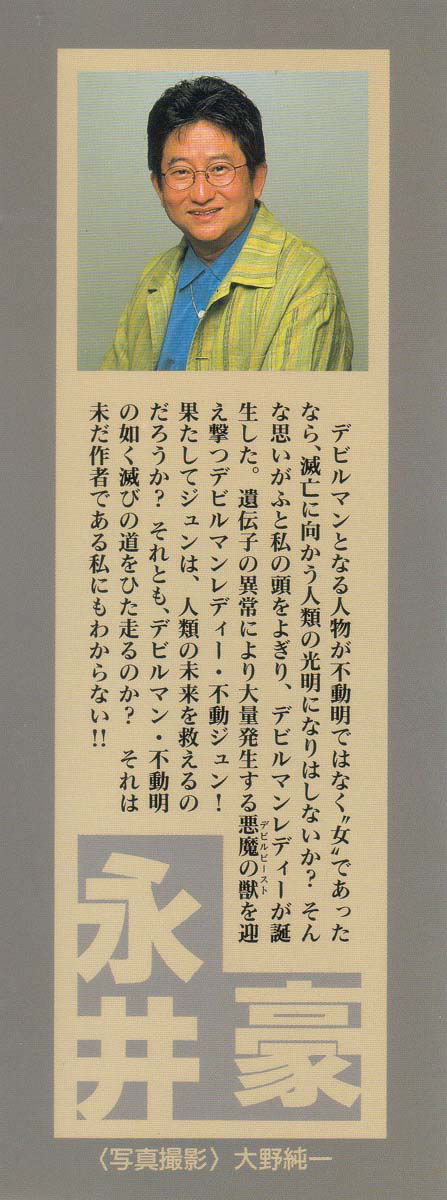 デビルマンとなる人物が不動明ではなく〝女〟であった
なら、滅亡に向かう人類の光明になりはしないか？ そん
な思いがふと私の頭をよぎり、デビルマンレディーが誕
生した。遺伝子の異常により大量発生する悪魔の獣を迎
デビルビースト
え撃つデビルマンレディー・不動ジュン！
果たしてジュンは、人類の未来を救えるの
だろうか？ それとも、デビルマン・不動明
の如く滅びの道をひた走るのか？ それは
未だ作者である私にもわからない!!
永井
豪
〈写真撮影〉大野純一